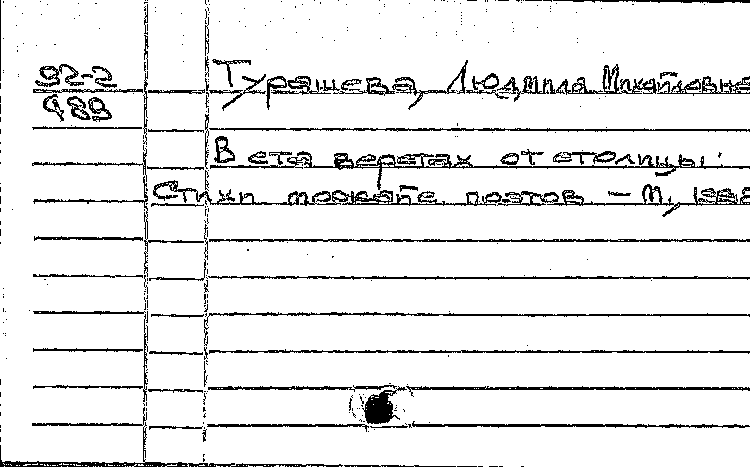 92-2
489
Турашева, Людмила Михайловна
В ста верстах от столицы:
Стихи поэтов - М, 1988